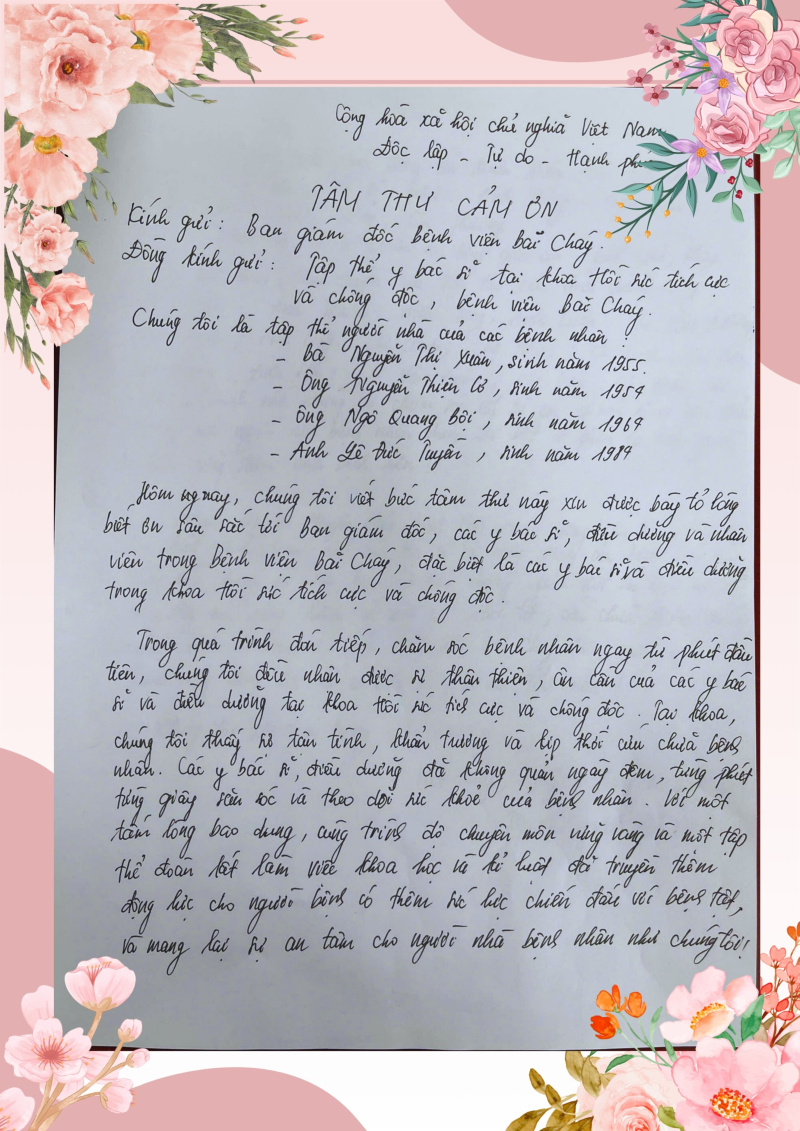 Cộng hoà xã hội chủ nghĩa Việt Nam
Độc lập - Tự do - Hạnh
TÂM THƯ CẢM ƠN
Kính gửi: Ban giám đốc bệnh viện Bãi Cháy.
Đồng kính gửi: Tập thể y bác sĩ tại khoa Hồi sức tích cực
và chống độc, bệnh viện Bãi Cháy.
Chúng tôi là tập thể người nhà của các bệnh nhân:
- Bà Nguyễn Thị Xuân, sinh năm 1955.
- Ông Nguyễn Thiện Cơ, sinh năm 1954
- Ông Ngô Quang Bội, sinh năm 1964
- Anh Lê Đức Tuyền, sinh năm 1984
Hôm ngnay, chúng tôi viết bức tâm thư này xin được bày tỏ lòng
biết ơn sâu sắc tới Ban giám đốc, các y bác sĩ, điều dưỡng và nhân
viên trong Bệnh viện Bãi Cháy, đặc biệt là các y bác sĩ và điều dưỡng
trong khoa Hồi sức tích cực và chống độc.
Trong quá trình đón tiếp, chăm sóc bệnh nhân ngay từ phút đầu
tiên, chúng tôi đều nhận được sự thân thiện, ân cần của các y bác
sĩ và điều dưỡng tại khoa Hồi sức tích cực và chống độc. Tại khoa,
chúng tôi thấy sự tận tình, khẩn trương và kịp thời cứu chữa bệnh
nhân. Các y bác sĩ, điều dưỡng đã không quản ngày đêm, từng phút
từng giây săn sóc và theo dõi sức khoẻ của bệnh nhân. Với một
tấm lòng bao dung, cùng trình độ chuyên môn vững vàng và một tập
thể đoàn kết làm việc khoa học và kỉ luật đã truyền thêm
động lực cho người bệnh có thêm sức lực chiến đấu với bệnh tật,
và mang lại sự an tâm cho người nhà bệnh nhân như chúng tôi!